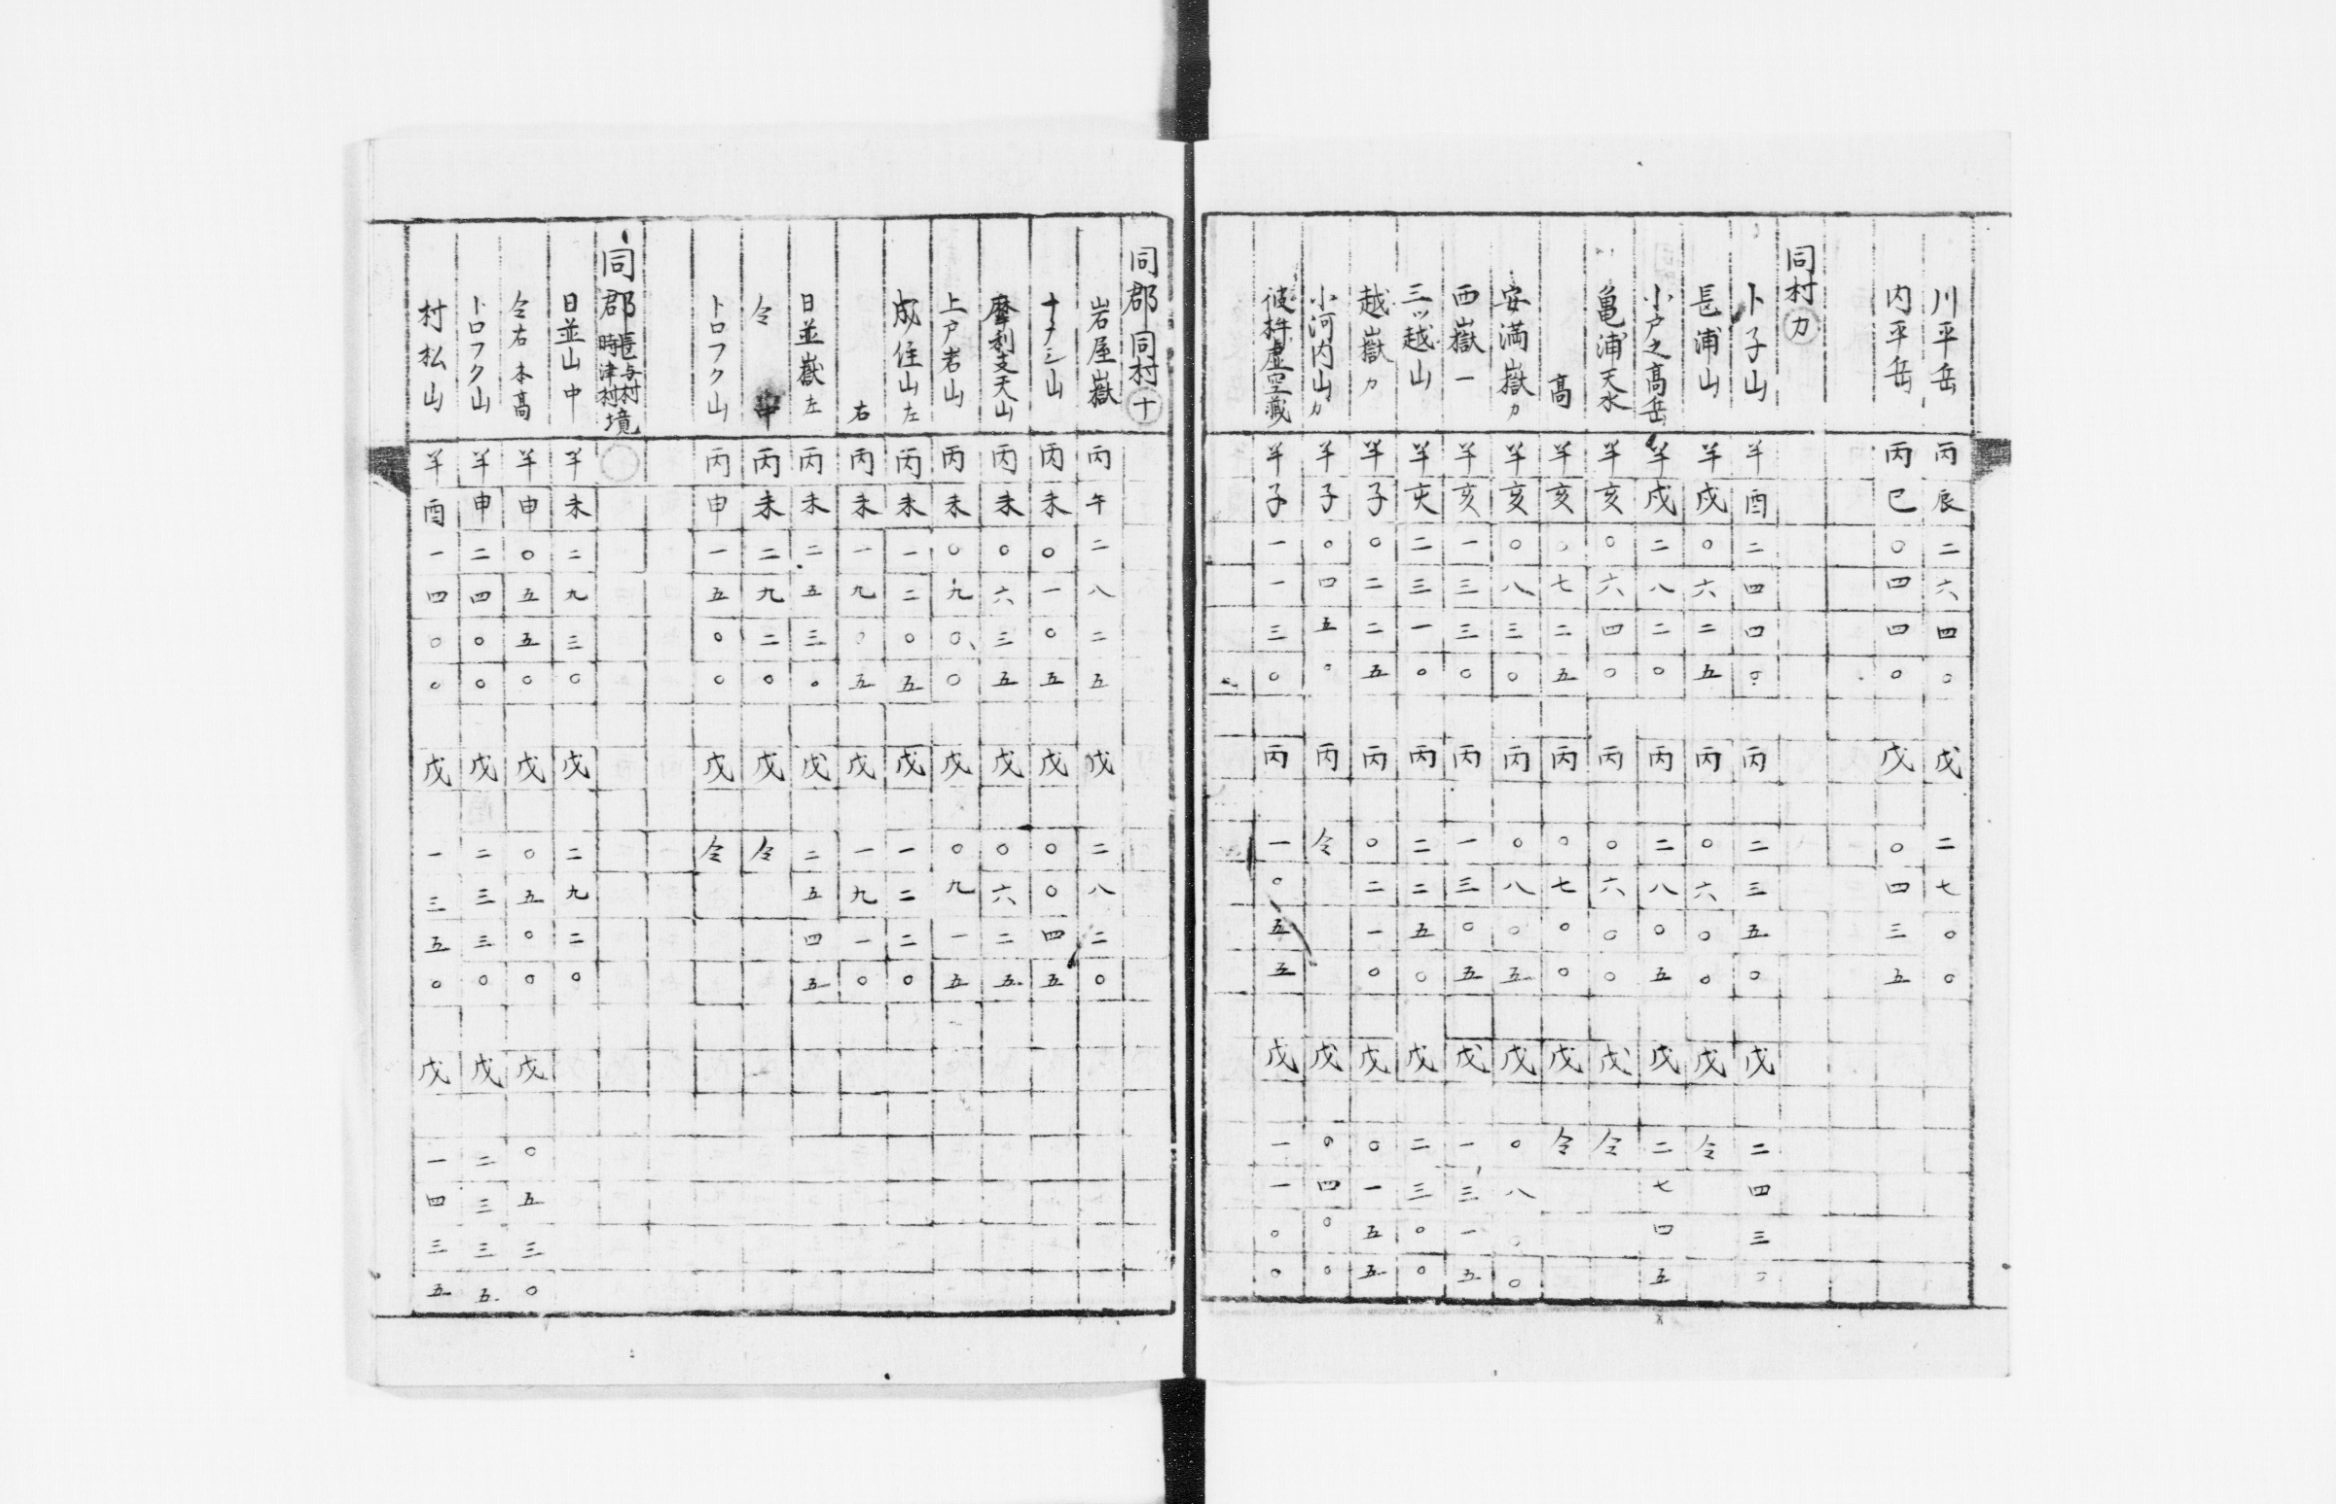 川平岳 丙辰二六四〇 戊二七〇〇
内平岳 丙巳〇四四〇 戊〇四三五
同村㋕
卜子山 羊酉二四四〇 丙二三五〇 戊二四三〇
長浦山 羊戌〇六二五 丙〇六〇〇 戊仝
小戸之髙岳 羊戌二八二〇 丙二八〇五 戊二七四五
亀浦天水 羊亥〇六四〇 丙〇六〇〇 戊仝
髙 羊亥〇七二五 丙〇七〇〇 戊仝
安満嶽カ 羊亥〇八三〇 丙〇八〇五 戊〇八〇〇
西嶽一 羊亥一三三〇 丙一三〇五 戊一三一五
三ッ越山 羊亥二三一〇 丙二二五〇 戊二三〇〇
越嶽カ 羊子〇二二五 丙〇二一〇 戊〇一五五
小河内山カ 羊子〇四五〇 丙仝 戊〇四〇〇
彼杵虚空蔵 羊子一一三〇 丙一〇五五 戊一一〇〇
同郡同村㊉
岩屋嶽 丙午二八二五 戊二八二〇
十ナシ山 丙未〇一〇五 戊〇〇四五
摩利支天山 丙未〇六三五 戊〇六二五
上戸岩山 丙未〇九〇〇 戊〇九一五
成住山左 丙未一二〇五 戊一二二〇
右 丙未一九〇五 戊一九一〇
日並嶽左 丙未二五三〇 戊二五四五
仝中 丙未二九二〇 戊仝
トロフク山 丙申一五〇〇 戊仝
同郡長与村時津村境〇
日並山中 羊未二九三〇 戊二九二〇
仝右本髙 羊申〇五五〇 戊〇五〇〇 戊〇五三〇
トロフク山 羊申二四〇〇 戊二三三〇 戊二三三五
村松山 羊酉一四〇〇 戊一三五〇 戊一四三五